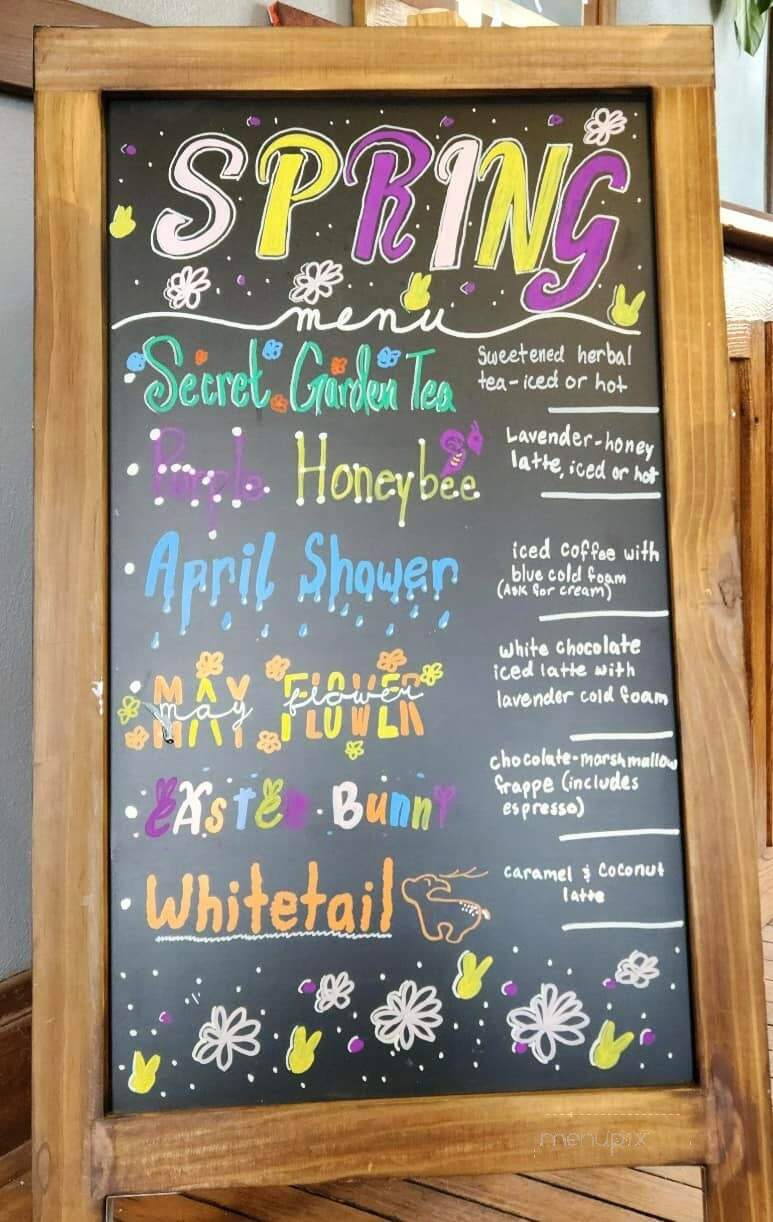 SPRING
menu
Secret Garden Tea
Sweetened herbal
tea-iced or hot
Purple Honeybee
Lavender-honey
latte, iced or hot
April Shower
iced coffee with
blue cold foam
(Ask for cream)
MAY FLOWER
may flower
white chocolate
iced latte with
lavender cold foam
EAster Bunny
chocolate-marshmallow
frappe (includes
espresso)
Whitetail
caramel & coconut
latte
menupix